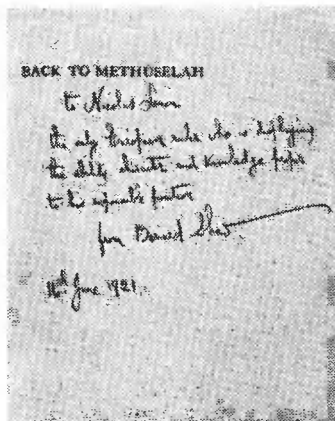 BACK TO METHUSELAH
to Nicolas Lenin
the only European ruler who is displaying
the ability, character and knowledge proper
to his responsible position
from Bernard Shaw
16th June 1921.